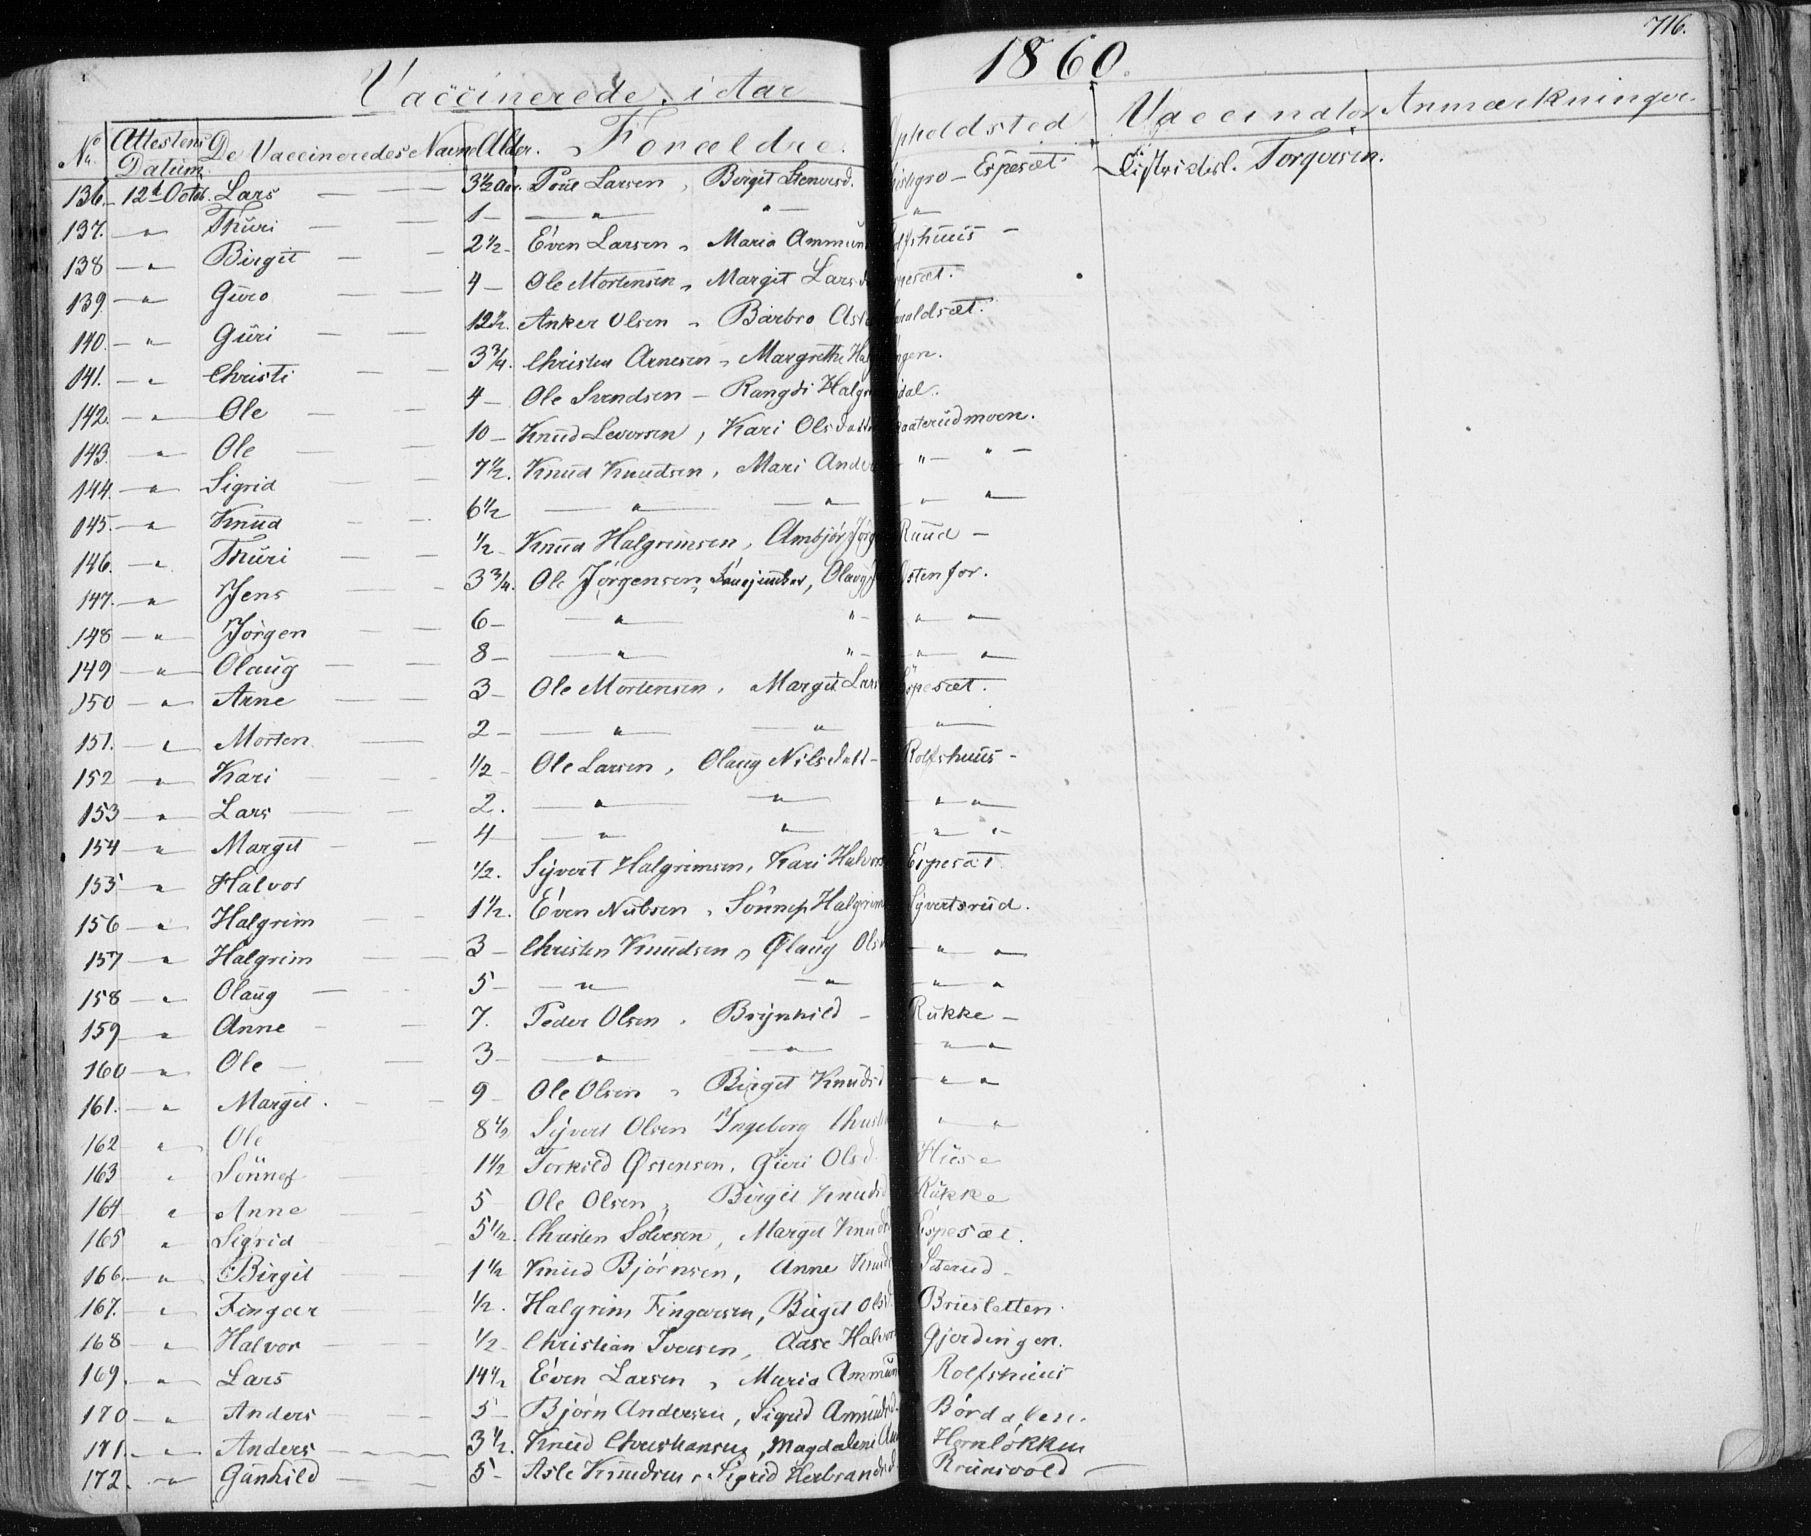 716.
Vaccinerede i Aar 1860.
No. Attestens Datum De Vaccineredes Navn Alder. Forældre. Opholdsted Vaccinator Anmærkninger.
136. 12te Octob. Lars 3½ Aar. Larsen, Birgit Espesæt Districtsl. Torgersen.
137. " Thuri 1 " " "
138 " Birgit 2½ Even Larsen, Maria Ammun Rolfshuus
139. " Guro 4 Ole Mortensen, Margit Larsd Espesæt.
140. " Guri 12½. Anker Olsen, Barbro
141. " Christi 3¾. Christen Arnesen, Margrethe
142. " Ole 4 Ole Svendsen Rangdi Halgr dal.
143. " Ole 10 Knud Leversen, Kari Olsdatter aaterudmoen.
144. " Sigrid 7½. Knud Knudsen, Mari Ander " "
145. " Knud 6½ " " " "
146. " Thuri ½ Knud Halgrimsen, Ambjør Jørg Ruud
147. " Jens 3¾. Ole Jörgensen, Olaug stenfor.
148 " Jörgen 6 " " " "
149 " Olaug 8 " " " "
150 " Arne 3 Ole Mortensen, Margit Lars Espesæt.
151. " Morten 2 " " "
152 " Kari ½ Ole Larsen, Olaug Nilsdatt Rolfshuus
153 " Lars 2. " " " "
154 " Margit 4 " " " "
155 " Halvor ½. Syvert Halgrimsen, Kari Halvors Espesæt
156 " Halgrim 1½. Even Nilsen, Sönnef Halgrim Syvertsrud.
157 " Halgrim 3 Christen Knudsen, Olaug Ols " "
158 " Olaug 5 " " " "
159 " Anne 7. Peder Olsen, Brynhild Rukke
160 " Ole 3 " " " "
161. " Margit. 9 Ole Olsen, Birgit Knudsd " "
162 " Ole 8½ Syvert Olsen Ingeborg " "
163 " Sönnef 1½ Torkild Østensen, Guri Olsd Huse
164 " Anne 5 Ole Olsen, Birgit Knudsd Rukke
165 " Sigrid 5½. Christen, Margit Knuds Espesæt.
166. " Birgit 1½ Knud Björnsen, Anne Knud Sæterud
167. " Fingar ½. Halgrim Fingarsen, Birgit Olsd Bruesletten.
168 " Halvor ½ Christian Iversen, Aase Halvor Gjerdingen.
169. " Lars 14½ Even Larsen, Maria Ammun Rolfshuus
170 " Anders 5 Björn Andersen, Sigrid Amundsd. Bördalen.
171. " Anders 3½. Knud Christiansen, Magdaleni Hernløkken
172. " Gunhild 5 Asle Knudsen, Sigrid Herbrandsd. Brunsvold